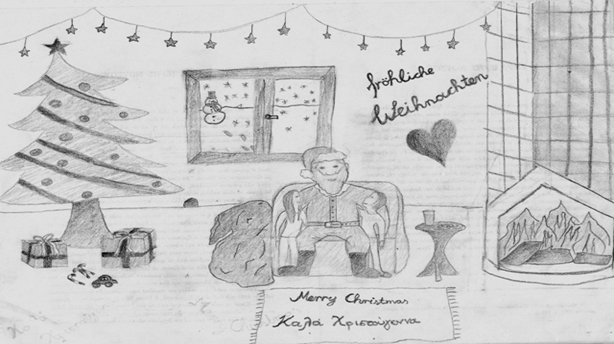 fröhliche
Weihnachten
Merry Christmas
Καλά Χριστούγεννα